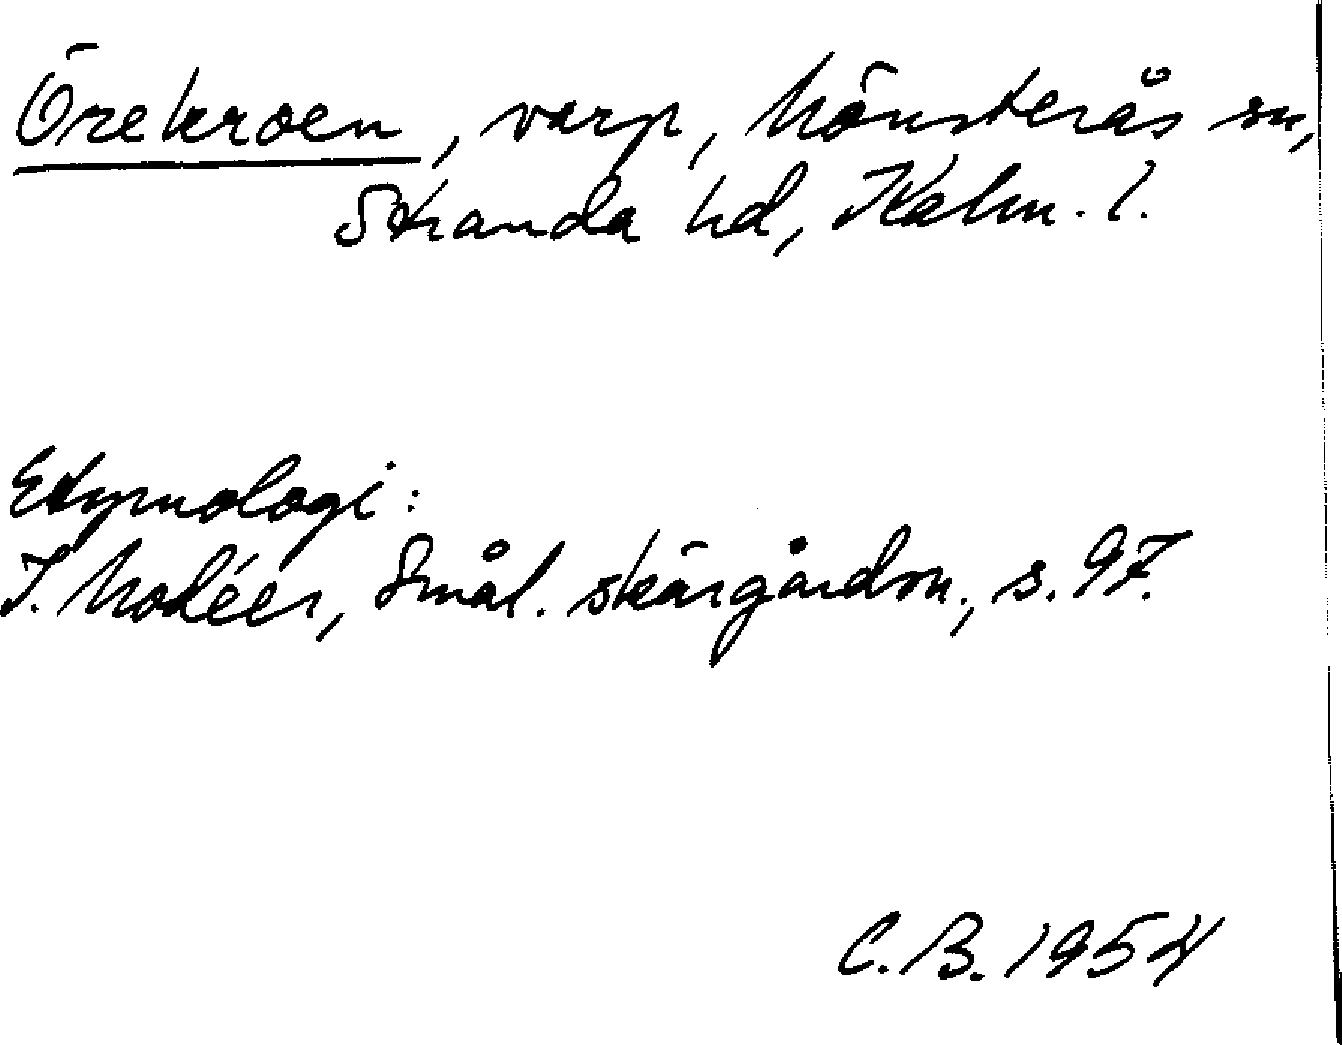 Örekroen, varp, Mönsterås sn,
Stranda hd, Kalm. l.
Etymologi:
I. Modéer, Smål. skärgårdsn., s. 97.
C.B. 1954